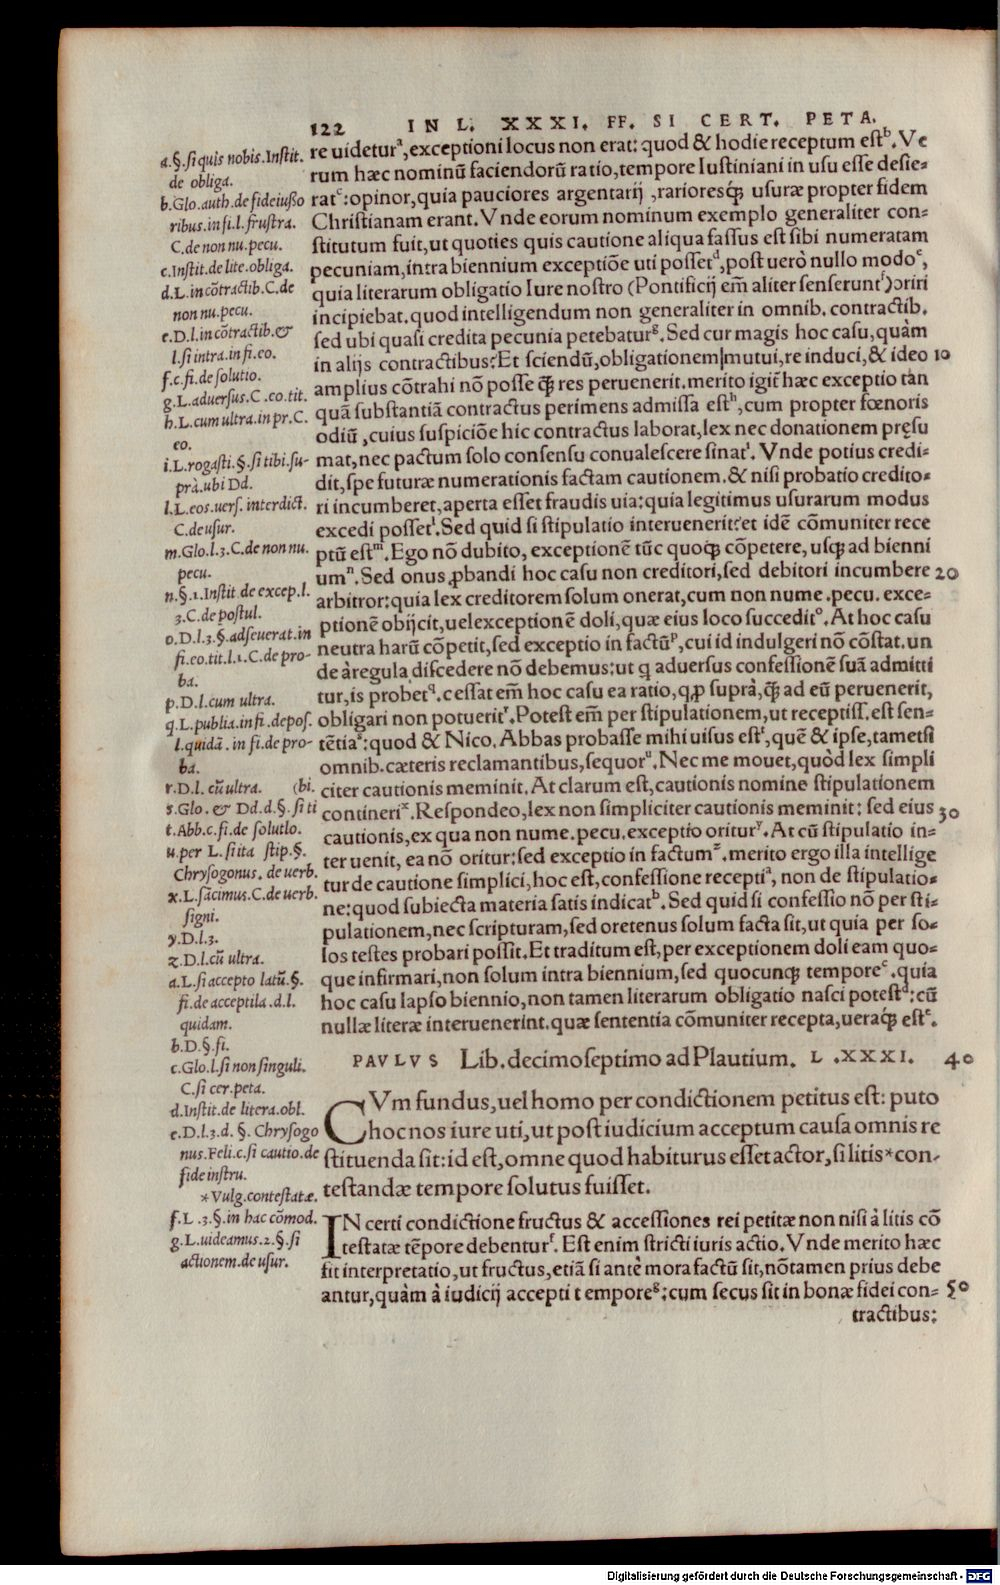 122 IN L. XXXI. FF. SI CERT. PETA.
re uideturᵃ, exceptioni locus non erat: quod & hodie receptum estᵇ. Ve
rum hæc nominũ faciendorũ ratio, tempore Iustiniani in usu esse desie-
ratᶜ: opinor, quia pauciores argentarij, rarioresq́; usuræ propter fidem
Christianam erant. Vnde eorum nominum exemplo generaliter con-
stitutum fuit, ut quoties quis cautione aliqua fassus est sibi numeratam
pecuniam, intra biennium exceptiõe uti possetᵈ, post uerò nullo modoᵉ,
quia literarum obligatio Iure nostro (Pontificij em̃ aliter senseruntᶠ) oriri
incipiebat. quod intelligendum non generaliter in omnib. contractib.
sed ubi quasi credita pecunia petebaturᵍ. Sed cur magis hoc casu, quàm
in alijs contractibus? Et sciendũ, obligationem mutui, re induci, & ideo 10
amplius cõtrahi nõ posse q̃ res peruenerit. merito igit̃ hæc exceptio tan
quã substantiã contractus perimens admissa estʰ, cum propter fœnoris
odiũ, cuius suspiciõe hic contractus laborat, lex nec donationem pręsu
mat, nec pactum solo consensu conualescere sinatⁱ. Vnde potius credi-
dit, spe futuræ numerationis factam cautionem. & nisi probatio credito-
ri incumberet, aperta esset fraudis uia: quia legitimus usurarum modus
excedi possetˡ. Sed quid si stipulatio interuenerit? et idẽ cõmuniter rece
ptũ estᵐ. Ego nõ dubito, exceptionẽ tũc quoq; cõpetere, usq; ad bienni
umⁿ. Sed onus ꝓbandi hoc casu non creditori, sed debitori incumbere 20
arbitror: quia lex creditorem solum onerat, cum non nume. pecu. exce-
ptionẽ obijcit, uel exceptionẽ doli, quæ eius loco succeditᵒ. At hoc casu
neutra harũ cõpetit, sed exceptio in factũᵖ, cui id indulgeri nõ cõstat. un
de à regula discedere nõ debemus: ut q aduersus confessionẽ suã admitti
tur, is probet𐞥. cessat em̃ hoc casu ea ratio, q, ꝓ suprà, q̃ ad eũ peruenerit,
obligari non potueritʳ. Potest em̃ per stipulationem, ut receptiss. est sen-
tẽtiaˢ: quod & Nico. Abbas probasse mihi uisus estᵗ, quẽ & ipse, tametsi
omnib. cæteris reclamantibus, sequorᵘ. Nec me mouet, quòd lex simpli
citer cautionis meminit. At clarum est, cautionis nomine stipulationem
contineriˣ. Respondeo, lex non simpliciter cautionis meminit: sed eius 30
cautionis, ex qua non nume. pecu. exceptio oriturʸ. At cũ stipulatio in-
teruenit, ea nõ oritur: sed exceptio in factumᶻ. merito ergo illa intellige
tur de cautione simplici, hoc est, confessione receptiᵃ, non de stipulatio-
ne: quod subiecta materia satis indicatᵇ. Sed quid si confessio nõ per sti-
pulationem, nec scripturam, sed oretenus solum facta sit, ut quia per so-
los testes probari possit. Et traditum est, per exceptionem doli eam quo-
que infirmari, non solum intra biennium, sed quocunq; temporeᶜ. quia
hoc casu lapso biennio, non tamen literarum obligatio nasci potestᵈ: cũ
nullæ literæ interuenerint. quæ sententia cõmuniter recepta, ueraq́; estᵉ.
PAVLVS Lib. decimoseptimo ad Plautium. L. XXXI. 40
CVm fundus, uel homo per condictionem petitus est: puto
hoc nos iure uti, ut post iudicium acceptum causa omnis re
stituenda sit: id est, omne quod habiturus esset actor, si litis*con-
testandæ tempore solutus fuisset.
IN certi condictione fructus & accessiones rei petitæ non nisi à litis cõ
testatæ tẽpore debenturᶠ. Est enim stricti iuris actio. Vnde merito hæc
fit interpretatio, ut fructus, etiã si antè mora factũ sit, nõ tamen prius debe
antur, quàm à iudicij accepti temporeᵍ: cum secus sit in bonæ fidei con- 50
tractibus:
a.§. si quis nobis. Instit.
de obliga.
b. Glo. auth. de fideiusso
ribus. in fi. l. frustra.
C. de non nu. pecu.
c. Instit. de lite. obliga.
d. L. in cõtractib. C. de
non nu. pecu.
e. D. l. in cõtractib. &
l. si intra. in fi. eo.
f. c. fi. de solutio.
g. L. aduersus. C. eo. tit.
h. L. cum ultra. in pr. C.
eo.
i. L. rogasti. §. si tibi. su-
prà. ubi Dd.
l. L. eos. uers. interdict.
C. de usur.
m. Glo. l. 3. C. de non nu.
pecu.
n. §. 1. Instit. de excep. l.
3. C. de postul.
o. D. l. 3. §. adseuerat. in
fi. eo. tit. l. 1. C. de pro-
ba.
p. D. l. cum ultra.
q. L. publia. in fi. depos.
l. quidã. in fi. de pro-
ba.
r. D. l. cũ ultra. (bi.
s. Glo. & Dd. d. §. si ti
t. Abb. c. fi. de solutio.
u. per L. si ita stip. §.
Chrysogonus. de uerb.
x. L. sãcimus. C. de uerb.
signi.
y. D. l. 3.
z. D. l. cũ ultra.
a. L. si accepto latũ. §.
fi. de acceptila. d. l.
quidam.
b. D. §. fi.
c. Glo. l. si non singuli.
C. si cer. peta.
d. Instit. de litera. obl.
e. D. l. 3. d. §. Chrysogo
nus. Feli. c. si cautio. de
fide instru.
*Vulg. contestatæ.
f. L. 3. §. in hac cõmod.
g. L. uideamus. 2. §. si
actionem. de usur.
Digitalisierung gefördert durch die Deutsche Forschungsgemeinschaft - DFG